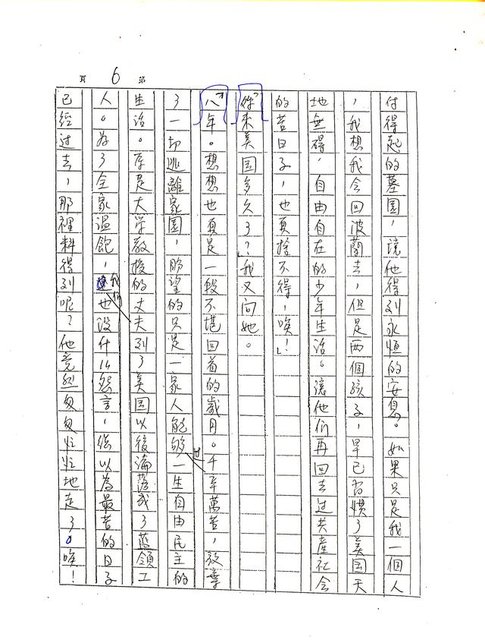 第 6 頁
付得起的墓園，讓他得到永恒的安息。如果只是我一個人
，我想我会回波蘭去，但是两個孩子，早已習慣了美国天
地無得，自由自在的少年生活。讓他们再回去过共產社会
的苦日子，也真捨不得，唉！」
「妳來美国多久了？」我又问她。
「八年。想想也真是一段不堪回首的歲月。千辛萬苦，放棄
了一切逃離家園，那望的只是一家人能够过一生自由民主的
生活。原是大学教授的丈夫到了美国以後淪落成了藍領工
人。为了全家温飽，我们也没什么怨言，總以為最苦的日子
已经过去，那裡料得到呢？他竟然匆匆忙忙地走了。唉！